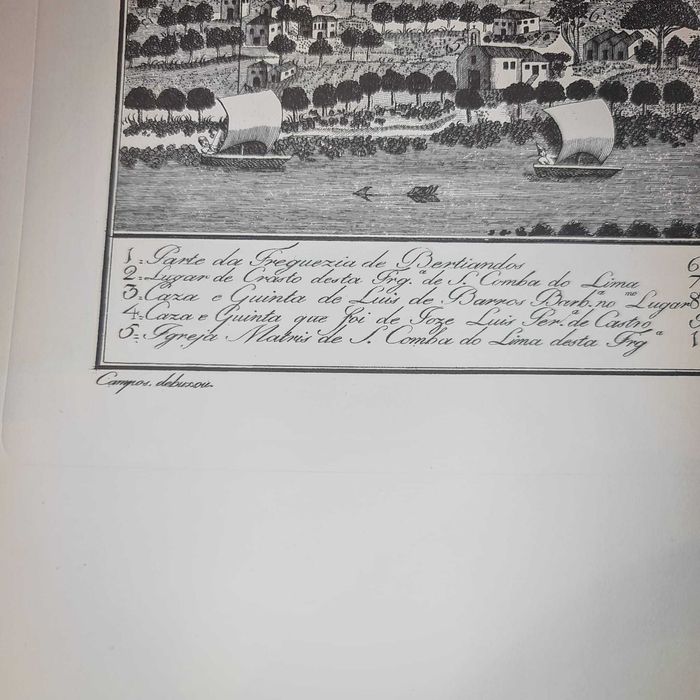 1=Parte da Freguezia de Bertiandos
2=Lugar de Crasto desta Frg.ª de S. Comba do Lima
3=Caza e Quinta de Luis de Barros Barb.ª no mº Lugar
4=Caza e Quinta que foi de Joze Luis Per.ª de Castro
5=Igreja Matris de S. Comba do Lima desta Frg.ª
6
7
8
Campos. debuxou.